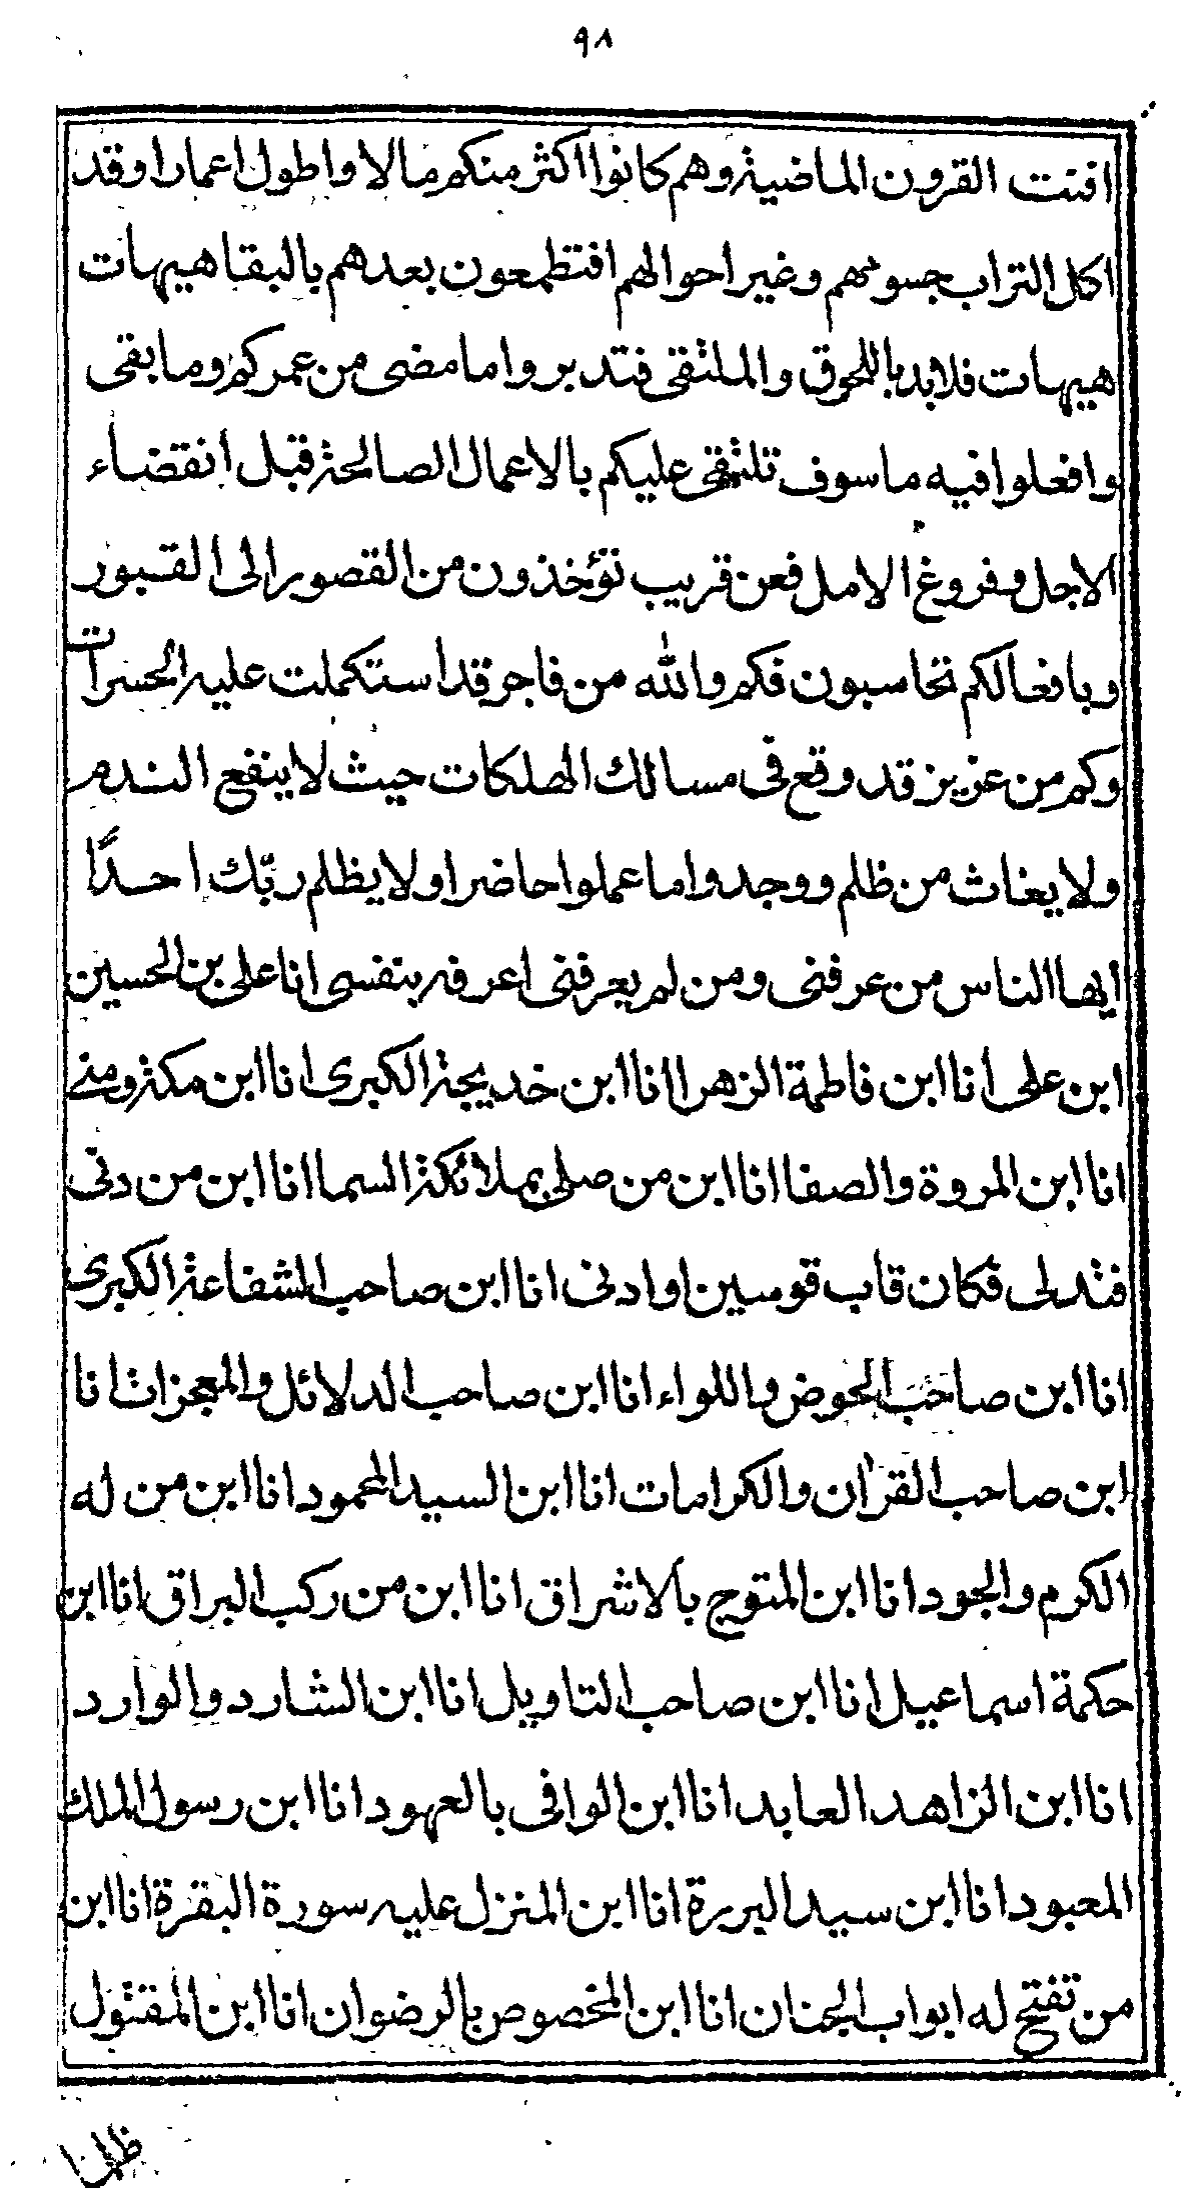 ٩٨
افنت القرون الماضية وهم كانوا اكثر منكم مالا واطول اعمارا وقد
اكل التراب جسومهم وغير احوالهم افتطمعون بعدهم بالبقا هيهات
هيهات فلابد باللحوق والملتقى فتدبروا ما مضى من عمركم وما بقى
وافعلوا فيه ما سوف تلتقى عليكم بالاعمال الصالحة قبل انقضاء
الاجل وفروغ الامل فعن قريب تؤخذون من القصور الى القبور
وبافعالكم تحاسبون فكم والله من فاجر قد استكملت عليه الحسرات
وكم من عزيز قد وقع فى مسالك الهلكات حيث لا ينفع الندم
ولا يغاث من ظلم ووجدوا ما عملوا حاضرا ولا يظلم ربّك احدًا
ايها الناس من عرفنى ومن لم يعرفنى اعرفه بنفسى انا على بن الحسين
ابن على انا ابن فاطمة الزهرا انا ابن خديجة الكبرى انا ابن مكة ومنى
انا ابن المروة والصفا انا ابن من صلى بملائكة السما انا ابن من دنى
فتدلى فكان قاب قوسين او ادنى انا ابن صاحب الشفاعة الكبرى
انا ابن صاحب الحوض واللواء انا ابن صاحب الدلائل والمعجزات انا
ابن صاحب القرآن والكرامات انا ابن السيد المحمود انا ابن من له
الكرم والجود انا ابن المتوج بالاشراق انا ابن من ركب البراق انا ابن
حكمة اسماعيل انا ابن صاحب التاويل انا ابن الشارد والوارد
انا ابن الزاهد العابد انا ابن الوافى بالعهود انا ابن رسول الملك
المعبود انا ابن سيد البررة انا ابن المنزل عليه سورة البقرة انا ابن
من تفتح له ابواب الجنان انا ابن المخصوص بالرضوان انا ابن المقتول
ظلما